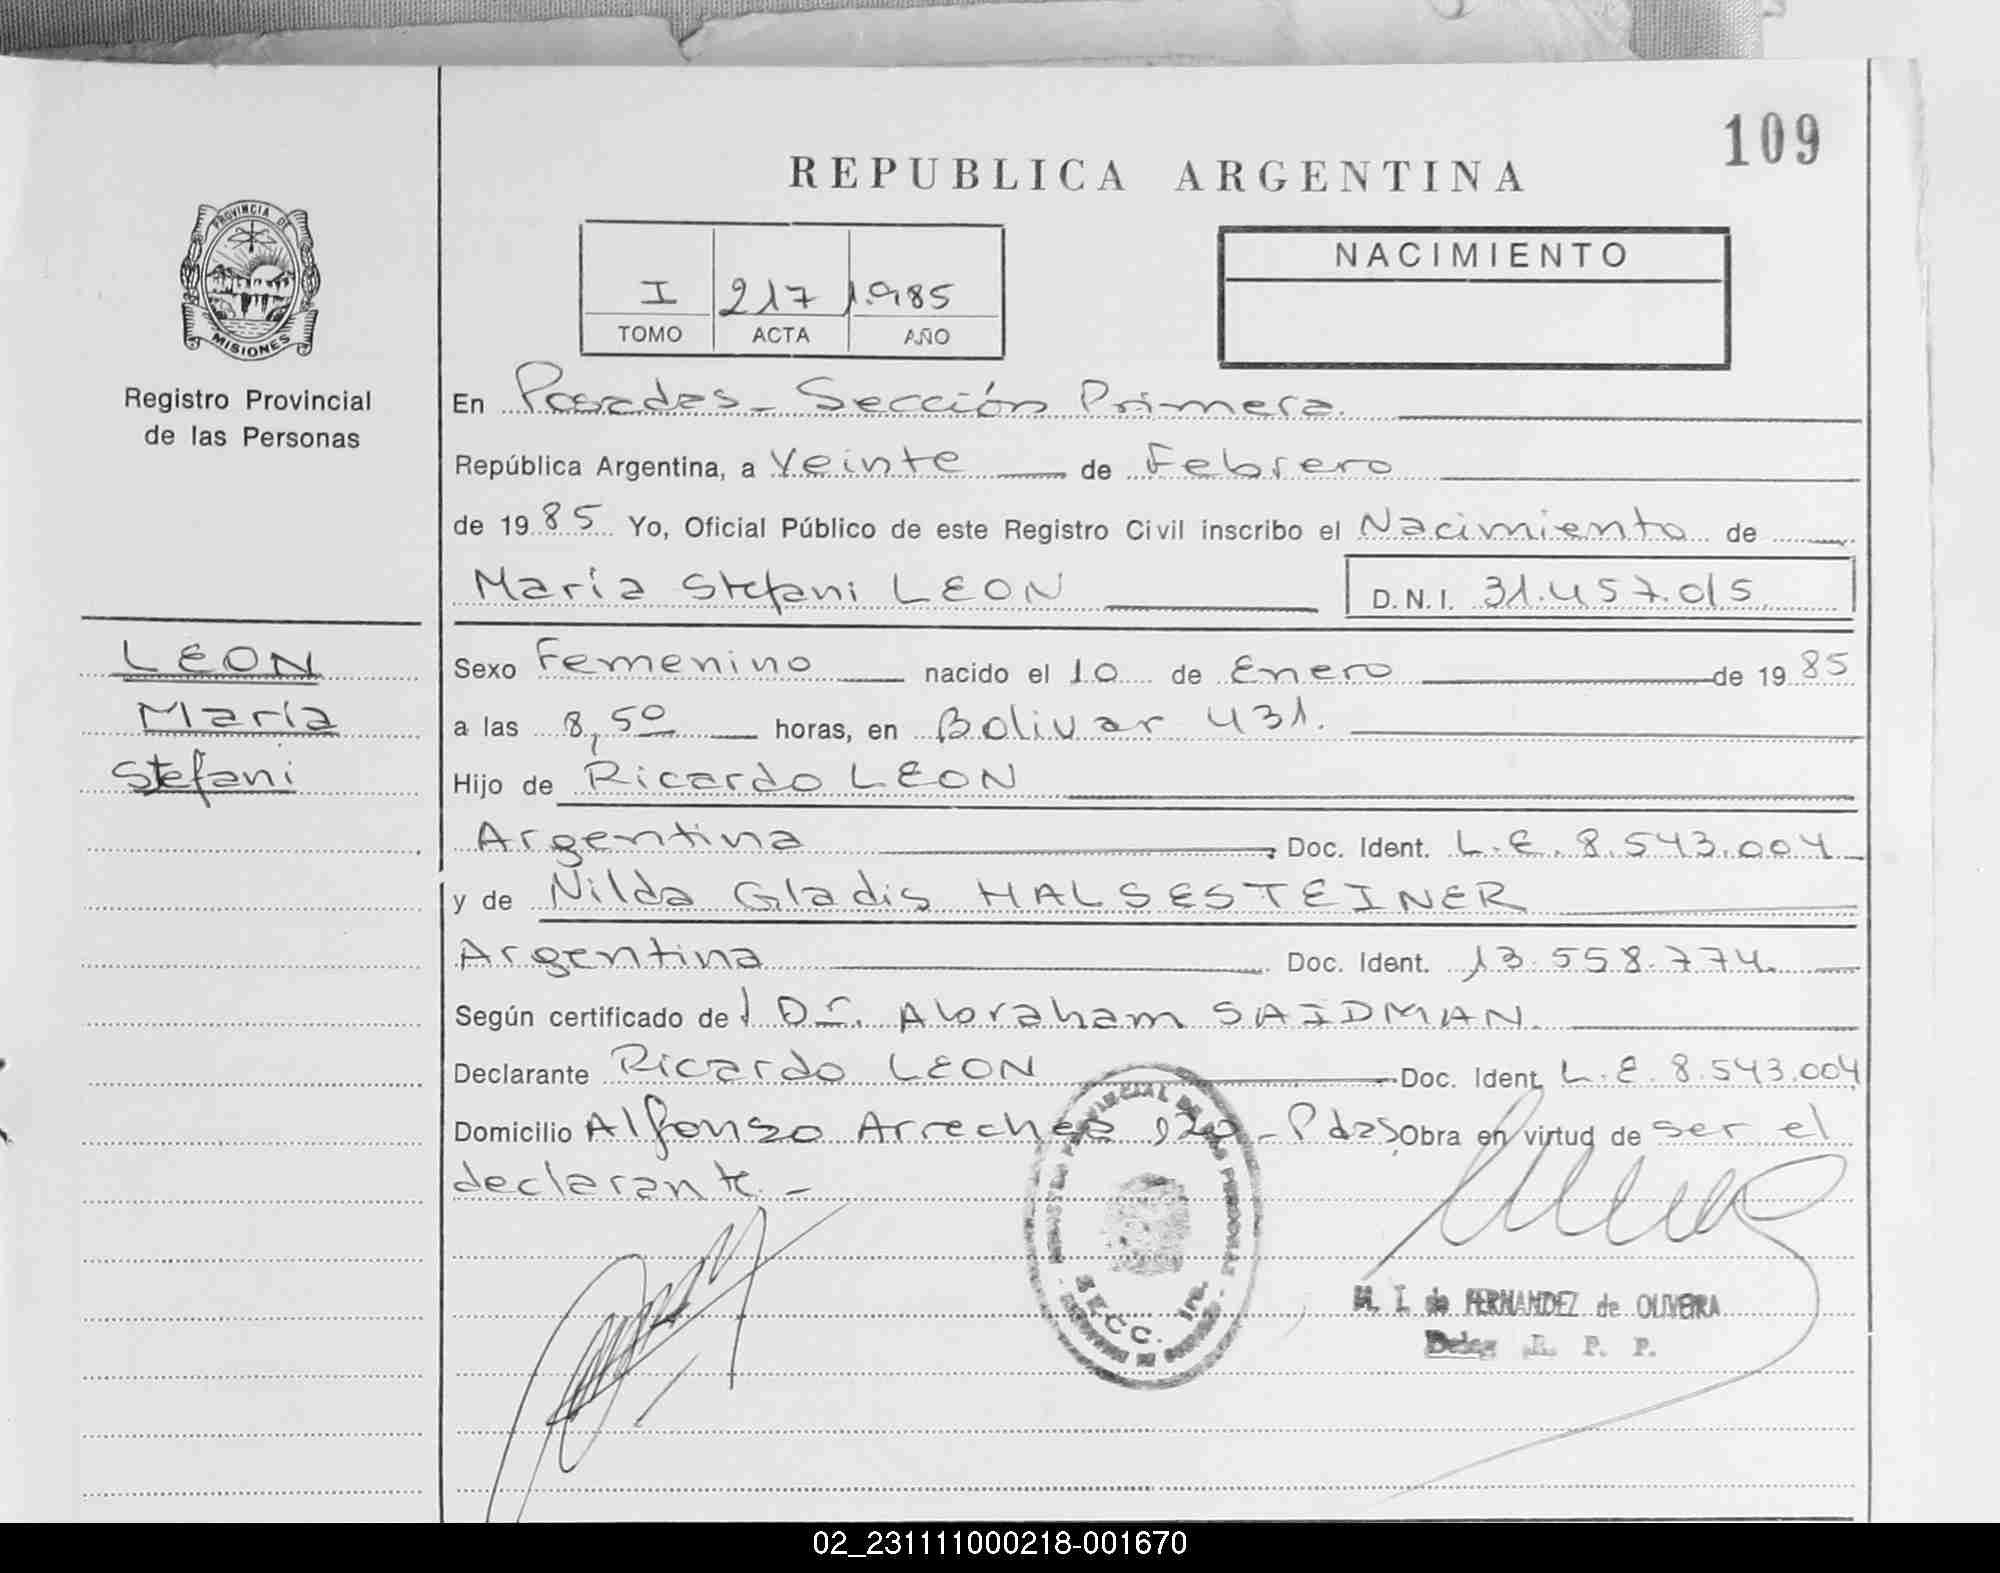 109
REPUBLICA ARGENTINA
PROVINCIA DE
MISIONES
Registro Provincial
de las Personas
I 217 1.985
TOMO ACTA AÑO
NACIMIENTO
En Posadas - Sección Primera.
República Argentina, a Veinte de Febrero
de 1985 Yo, Oficial Público de este Registro Civil inscribo el Nacimiento de
María Stefani LEON D.N.I. 31.457.015
LEON
María
Stefani
Sexo Femenino nacido el 10 de Enero de 1985
a las 8,50 horas, en Bolivar 431.
Hijo de Ricardo LEON
Argentina Doc. Ident. L.E. 8.543.004
y de Nilda Gladis HALSESTEINER
Argentina Doc. Ident. 13.558.774.
Según certificado del Dr. Abraham SAIDMAN
Declarante Ricardo LEON Doc. Ident. L.E. 8.543.004
Domicilio Alfonso Arrechea - Pdas, Obra en virtud de ser el
declarante. -
SECC. 1ra.
M. I. de FERNANDEZ de OLIVEIRA
Deleg. R. P. P.
02_231111000218-001670